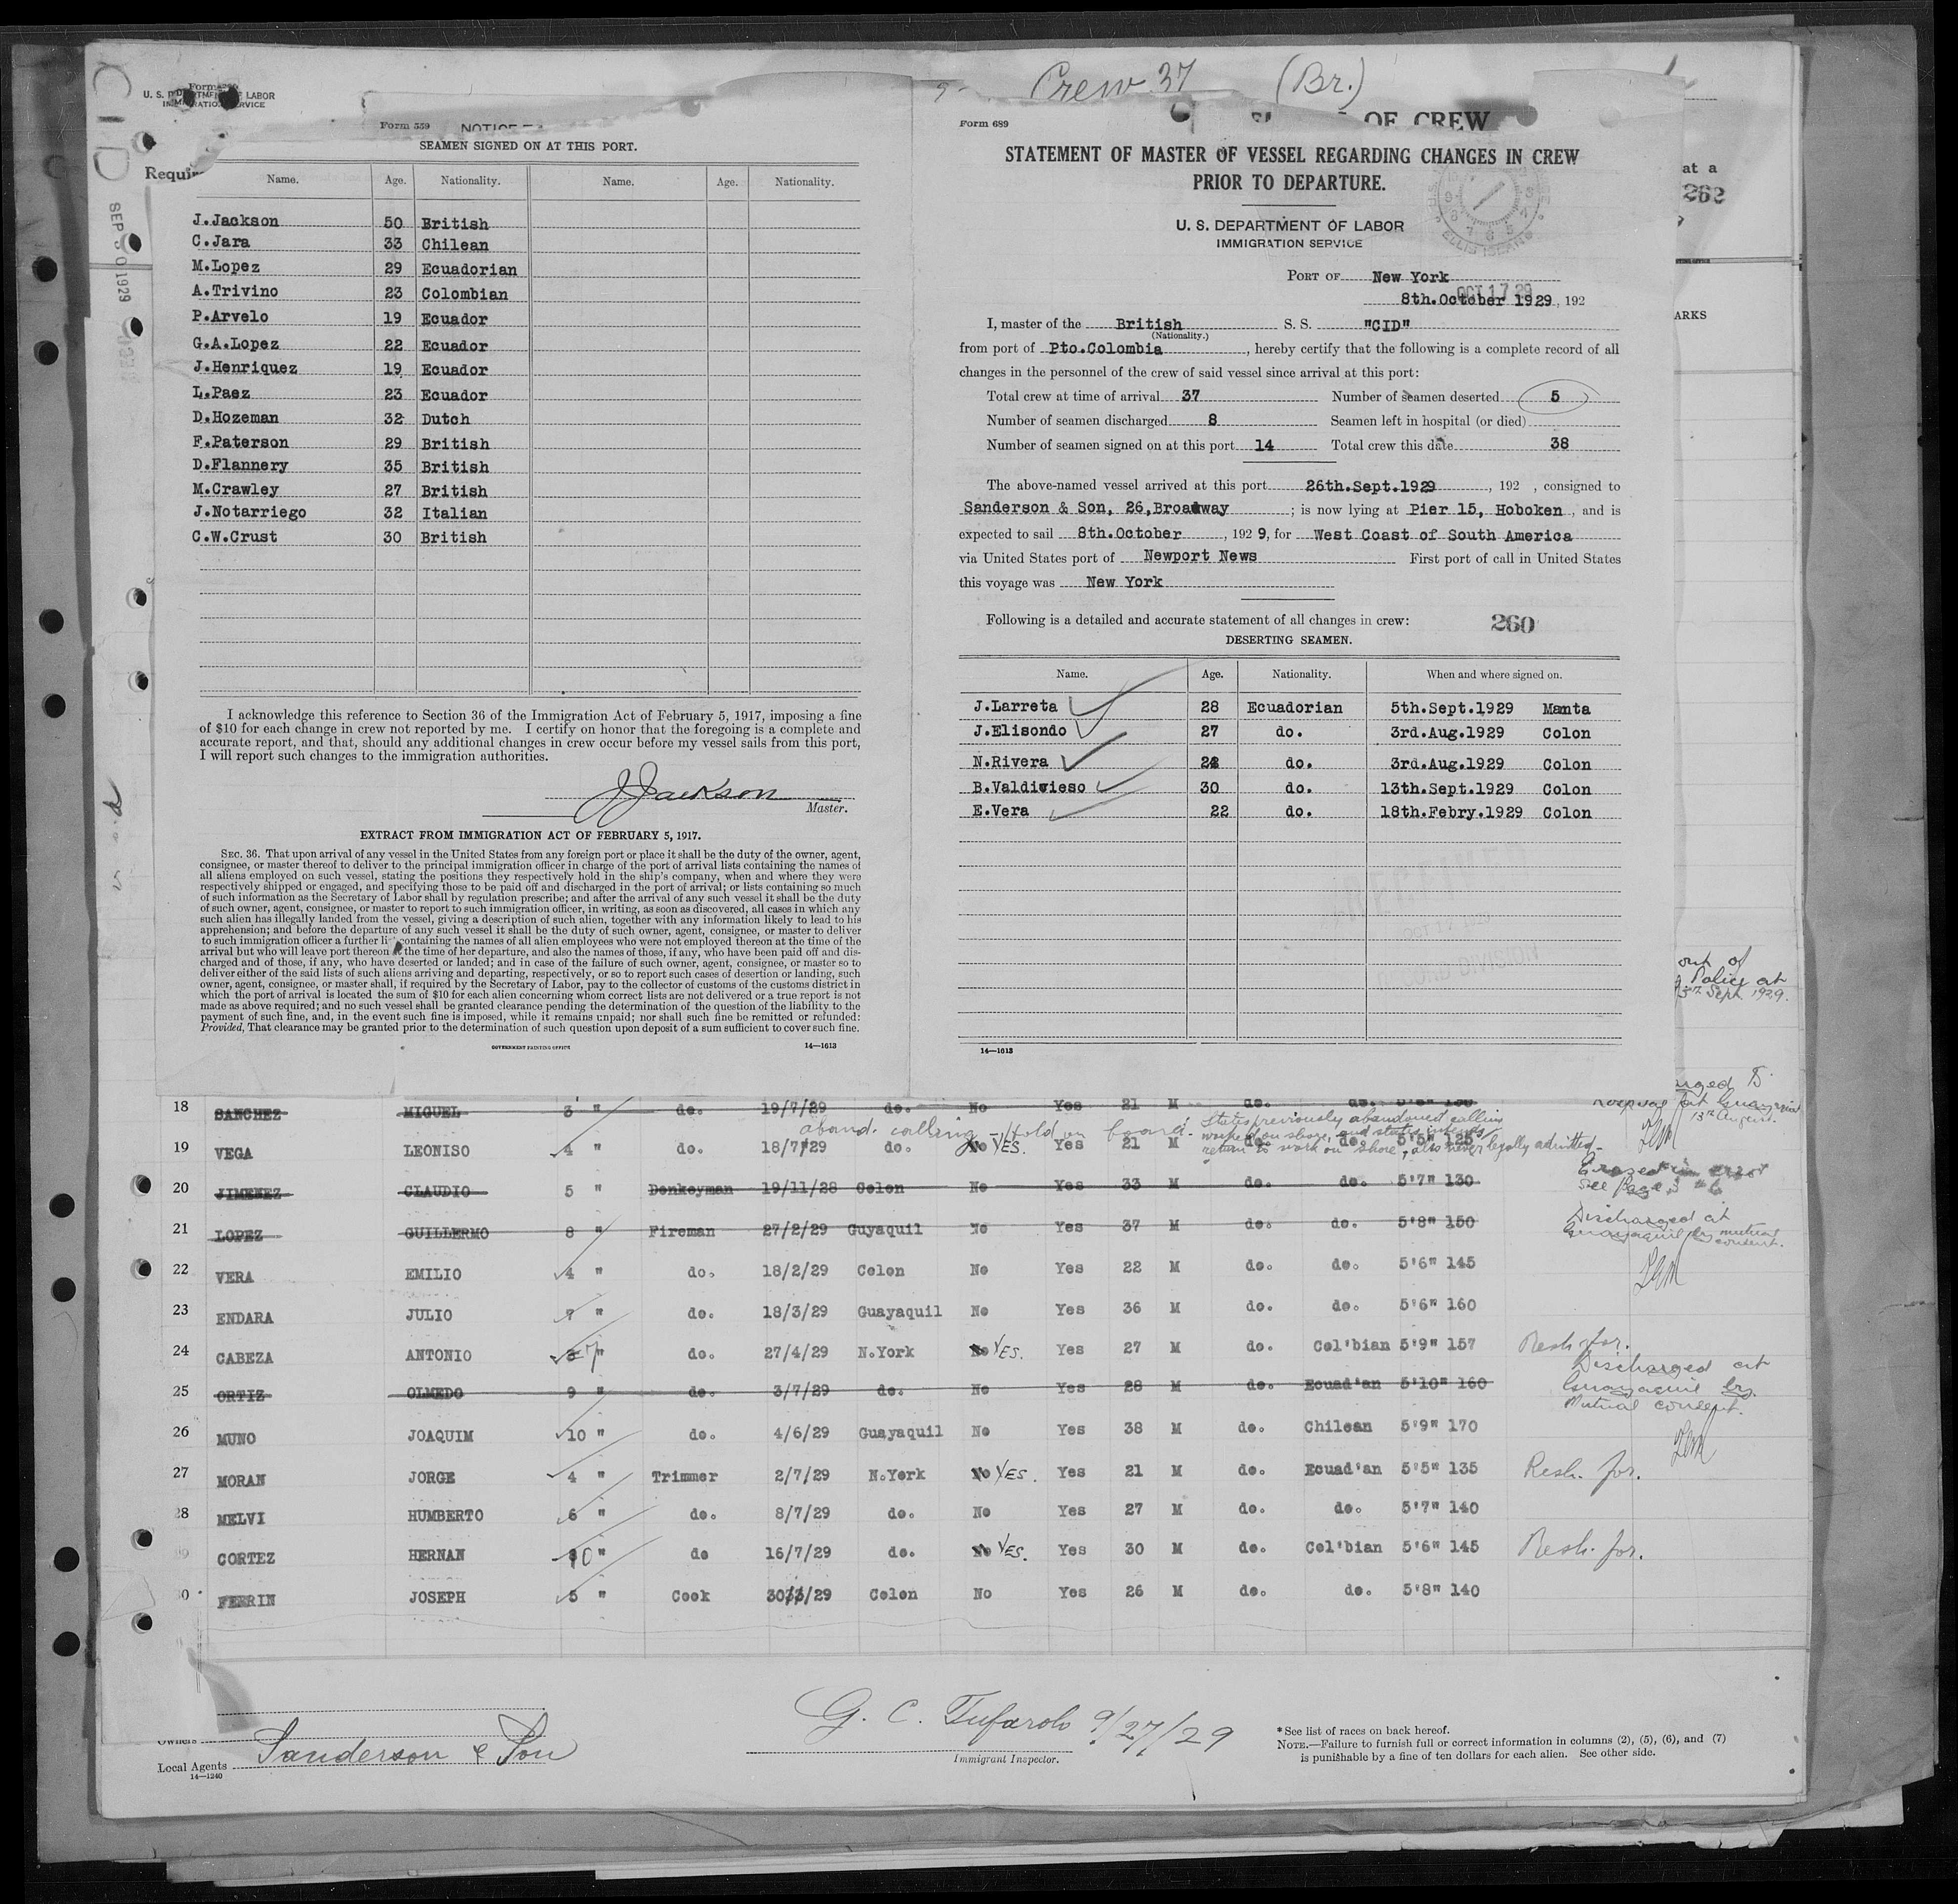 Crew 37 (Br.)
Form
U. S. DEPARTMENT OF LABOR
IMMIGRATION SERVICE
CID
SEP 30 1929
Requir
Form 559 NOTICE
SEAMEN SIGNED ON AT THIS PORT.
Name. Age. Nationality. Name. Age. Nationality.
J.Jackson 50 British
C.Jara 33 Chilean
M.Lopez 29 Ecuadorian
A.Trivino 23 Colombian
P.Arvelo 19 Ecuador
G.A.Lopez 22 Ecuador
J.Henriquez 19 Ecuador
L.Paez 23 Ecuador
D.Hozeman 32 Dutch
F.Paterson 29 British
D.Flannery 35 British
M.Crawley 27 British
J.Notarriego 32 Italian
C.W.Crust 30 British
I acknowledge this reference to Section 36 of the Immigration Act of February 5, 1917, imposing a fine
of $10 for each change in crew not reported by me. I certify on honor that the foregoing is a complete and
accurate report, and that, should any additional changes in crew occur before my vessel sails from this port,
I will report such changes to the immigration authorities.
JJackson
Master.
EXTRACT FROM IMMIGRATION ACT OF FEBRUARY 5, 1917.
SEC. 36. That upon arrival of any vessel in the United States from any foreign port or place it shall be the duty of the owner, agent,
consignee, or master thereof to deliver to the principal immigration officer in charge of the port of arrival lists containing the names of
all aliens employed on such vessel, stating the positions they respectively hold in the ship's company, when and where they were
respectively shipped or engaged, and specifying those to be paid off and discharged in the port of arrival; or lists containing so much
of such information as the Secretary of Labor shall by regulation prescribe; and after the arrival of any such vessel it shall be the duty
of such owner, agent, consignee, or master to report to such immigration officer, in writing, as soon as discovered, all cases in which any
such alien has illegally landed from the vessel, giving a description of such alien, together with any information likely to lead to his
apprehension; and before the departure of any such vessel it shall be the duty of such owner, agent, consignee, or master to deliver
to such immigration officer a further li containing the names of all alien employees who were not employed thereon at the time of the
arrival but who will leave port thereon at the time of her departure, and also the names of those, if any, who have been paid off and dis-
charged and of those, if any, who have deserted or landed; and in case of the failure of such owner, agent, consignee, or master so to
deliver either of the said lists of such aliens arriving and departing, respectively, or so to report such cases of desertion or landing, such
owner, agent, consignee, or master shall, if required by the Secretary of Labor, pay to the collector of customs of the customs district in
which the port of arrival is located the sum of $10 for each alien concerning whom correct lists are not delivered or a true report is not
made as above required; and no such vessel shall be granted clearance pending the determination of the question of the liability to the
payment of such fine, and, in the event such fine is imposed, while it remains unpaid; nor shall such fine be remitted or refunded:
Provided, That clearance may be granted prior to the determination of such question upon deposit of a sum sufficient to cover such fine.
GOVERNMENT PRINTING OFFICE 14—1613
Form 689
OF CREW
STATEMENT OF MASTER OF VESSEL REGARDING CHANGES IN CREW
PRIOR TO DEPARTURE.
U. S. DEPARTMENT OF LABOR
IMMIGRATION SERVICE
ELLIS ISLAND
PORT OF New York
OCT 17 29
8th.October 1929, 192
I, master of the British S. S. "CID"
(Nationality.)
from port of Pto.Colombia, hereby certify that the following is a complete record of all
changes in the personnel of the crew of said vessel since arrival at this port:
Total crew at time of arrival 37 Number of seamen deserted 5
Number of seamen discharged 8 Seamen left in hospital (or died)
Number of seamen signed on at this port 14 Total crew this date 38
The above-named vessel arrived at this port 26th.Sept.1929, 192 , consigned to
Sanderson & Son, 26,Broadway ; is now lying at Pier 15, Hoboken, and is
expected to sail 8th.October, 192 9, for West Coast of South America
via United States port of Newport News First port of call in United States
this voyage was New York
Following is a detailed and accurate statement of all changes in crew: 260
DESERTING SEAMEN.
Name. Age. Nationality. When and where signed on.
J.Larreta 28 Ecuadorian 5th.Sept.1929 Manta
J.Elisondo 27 do. 3rd.Aug.1929 Colon
N.Rivera 28 do. 3rd.Aug.1929 Colon
B.Valdivieso 30 do. 13th.Sept.1929 Colon
E.Vera 22 do. 18th.Febry.1929 Colon
OCT 17 1929
RECORD DIVISION
14—1613
at a
262
ARKS
out of
Police at
Sept. 1929.
18 SANCHEZ MIGUEL 3 " do. 19/7/29 do. No Yes 21 M do. do.
Hospital at Guayaquil
13th August.
aband. calling - Hold on board. States previously abandoned calling
worked on shore, and states intends
return to work on shore, also never legally admitted-
19 VEGA LEONISO 4 " do. 18/7/29 do. No YES. Yes 21 M do. do. 5'5" 125
20 JIMENEZ CLAUDIO 5 " Donkeyman 19/11/28 Colon No Yes 33 M do. do. 5'7" 130
Erased in error
see page 3 #6
21 LOPEZ GUILLERMO 8 " Fireman 27/2/29 Guyaquil No Yes 37 M do. do. 5'8" 150
Discharged at
Guayaquil by mutual
consent.
22 VERA EMILIO 4 " do. 18/2/29 Colon No Yes 22 M do. do. 5'6" 145
23 ENDARA JULIO 7 " do. 18/3/29 Guayaquil No Yes 36 M do. do. 5'6" 160
24 CABEZA ANTONIO 7 " do. 27/4/29 N.York No YES. Yes 27 M do. Col'bian 5'9" 157 Resh. for.
25 ORTIZ OLMEDO 9 " do. 3/7/29 do. No Yes 28 M do. Ecuad'an 5'10" 160
Discharged at
Guayaquil by
Mutual consent.
26 MUNO JOAQUIM 10 " do. 4/6/29 Guayaquil No Yes 38 M do. Chilean 5'9" 170
27 MORAN JORGE 4 " Trimmer 2/7/29 N.York No YES. Yes 21 M do. Ecuad'an 5'5" 135 Resh. for.
28 MELVI HUMBERTO 6 " do. 8/7/29 do. No Yes 27 M do. do. 5'7" 140
29 CORTEZ HERNAN 10 " do 16/7/29 do. No YES. Yes 30 M do. Col'bian 5'6" 145 Resh. for.
30 FERRIN JOSEPH 5 " Cook 30/3/29 Colon No Yes 26 M do. do. 5'8" 140
Owners
Local Agents Sanderson & Son
14—1240
G. C. Tufarolo 9/27/29
Immigrant Inspector.
*See list of races on back hereof.
NOTE.—Failure to furnish full or correct information in columns (2), (5), (6), and (7)
is punishable by a fine of ten dollars for each alien. See other side.